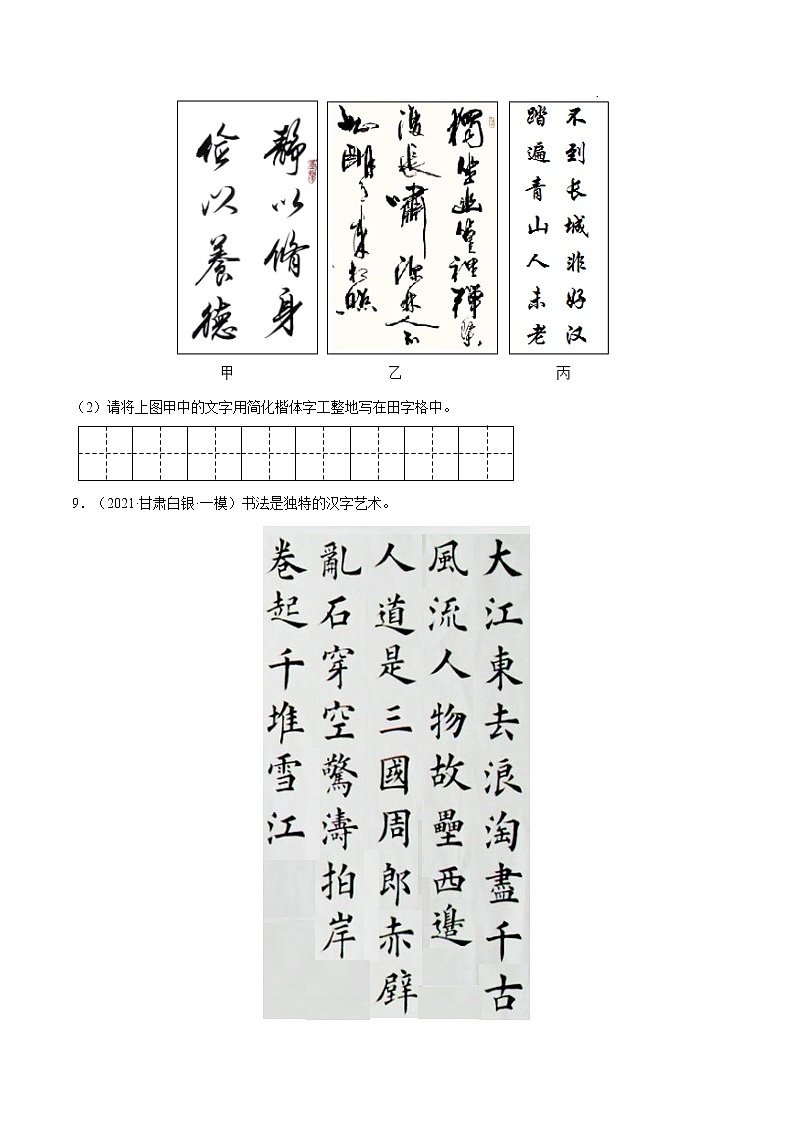 静以修身
俭以養德
獨坐幽篁裡彈琴
復長嘯深林人不
知明月来相照
不到长城非好汉
踏遍青山人未老
甲 乙 丙
（2）请将上图甲中的文字用简化楷体字工整地写在田字格中。
9．（2021·甘肃白银·一模）书法是独特的汉字艺术。
大江東去浪淘盡千古
風流人物故壘西邊
人道是三國周郎赤壁
亂石穿空驚濤拍岸
卷起千堆雪江